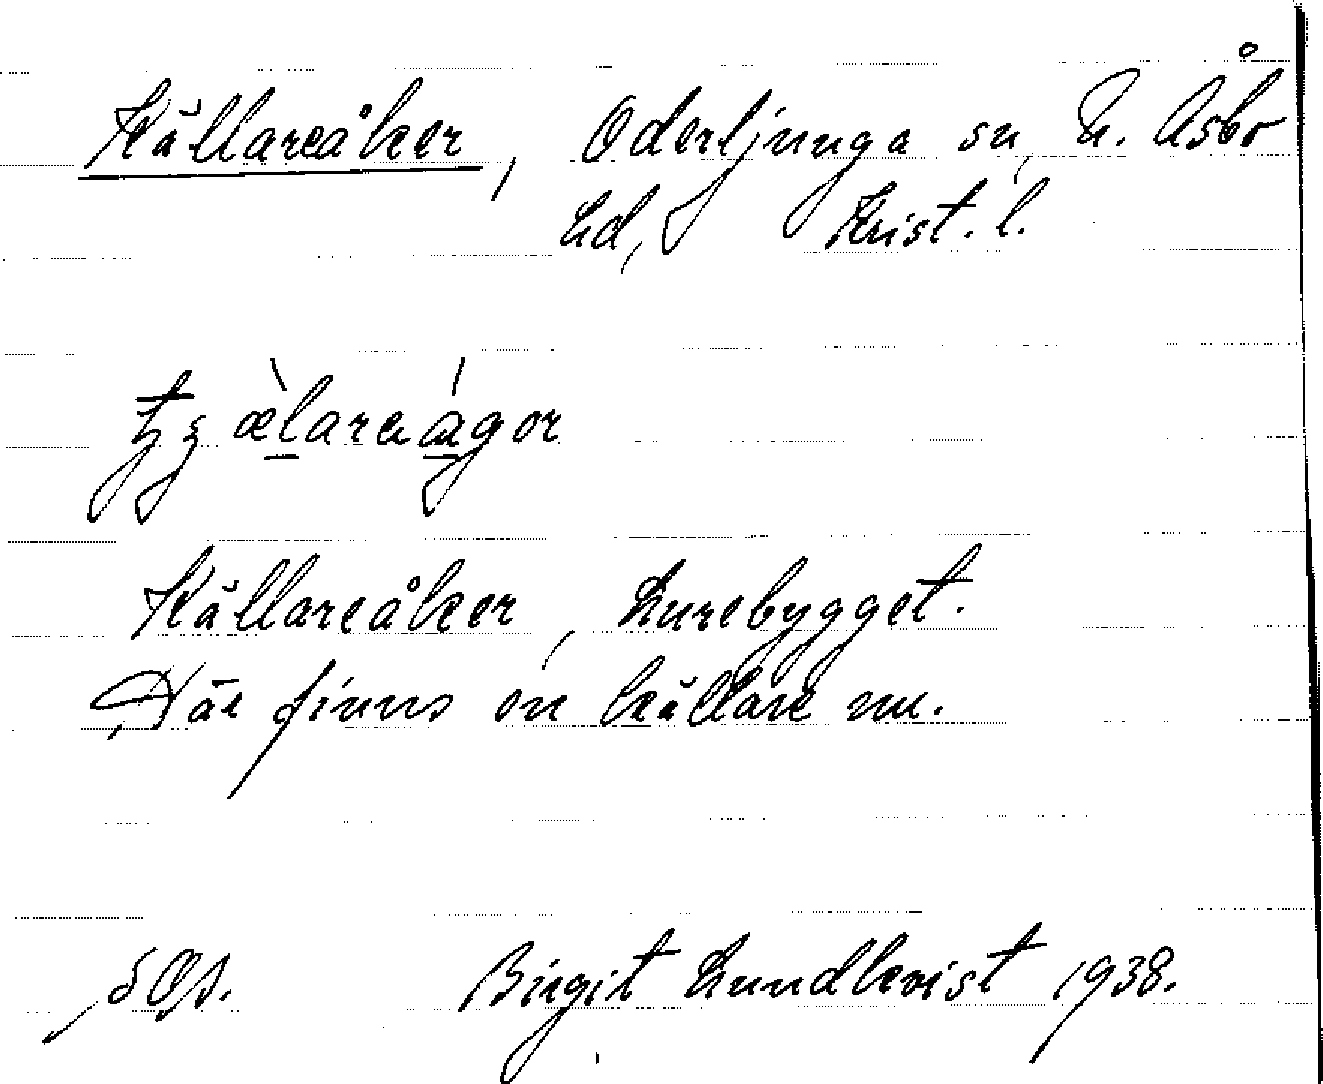 Källareåker, Oderljunga sn, N. Åsbo
hd, Krist. l.
Källareåker, Lurebygget.
Där finns en källare nu.
Birgit Lundkvist 1938.